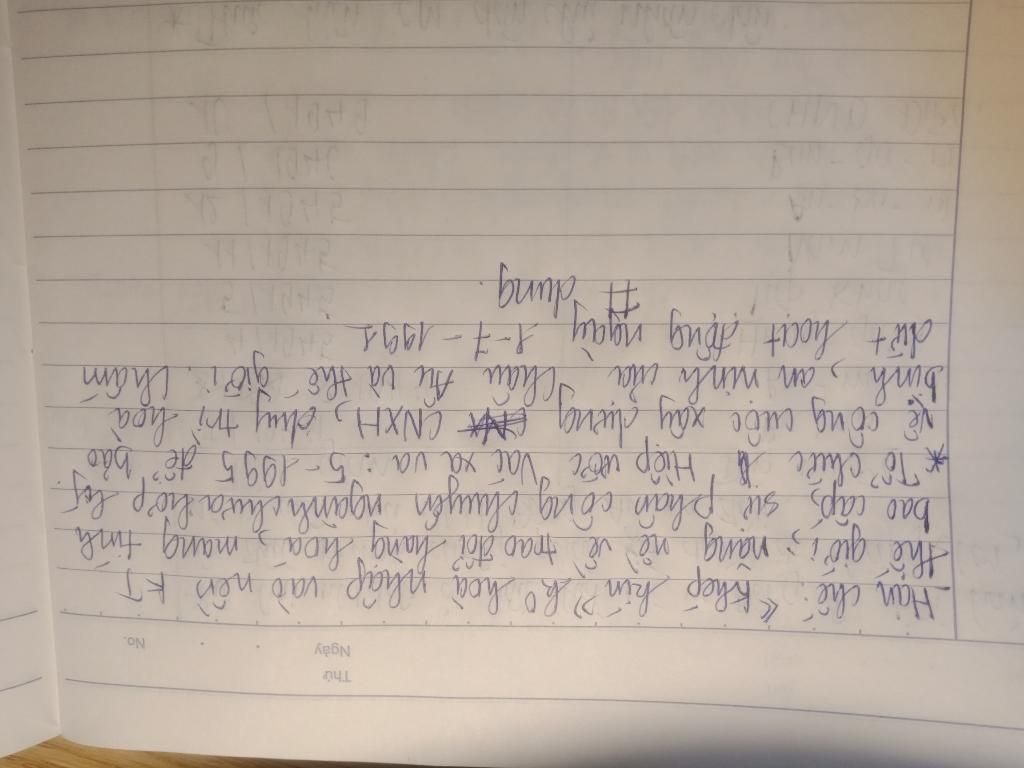 Thứ
Ngày No.
Hạn chế: «khép kín» ko hoà nhập vào nền KT
thế giới; nặng nề về trao đổi hàng hoá, mang tính
bao cấp, sự phân công chuyên ngành chưa hợp lý.
* Tổ chức Hiệp ước Vac xa va: 5-1995 để bảo
vệ công cuộc xây dựng CNXH, duy trì hoà
bình, an ninh của Châu Âu và thế giới. Chấm
dứt hoạt động ngày 1-7-1991
# dung.